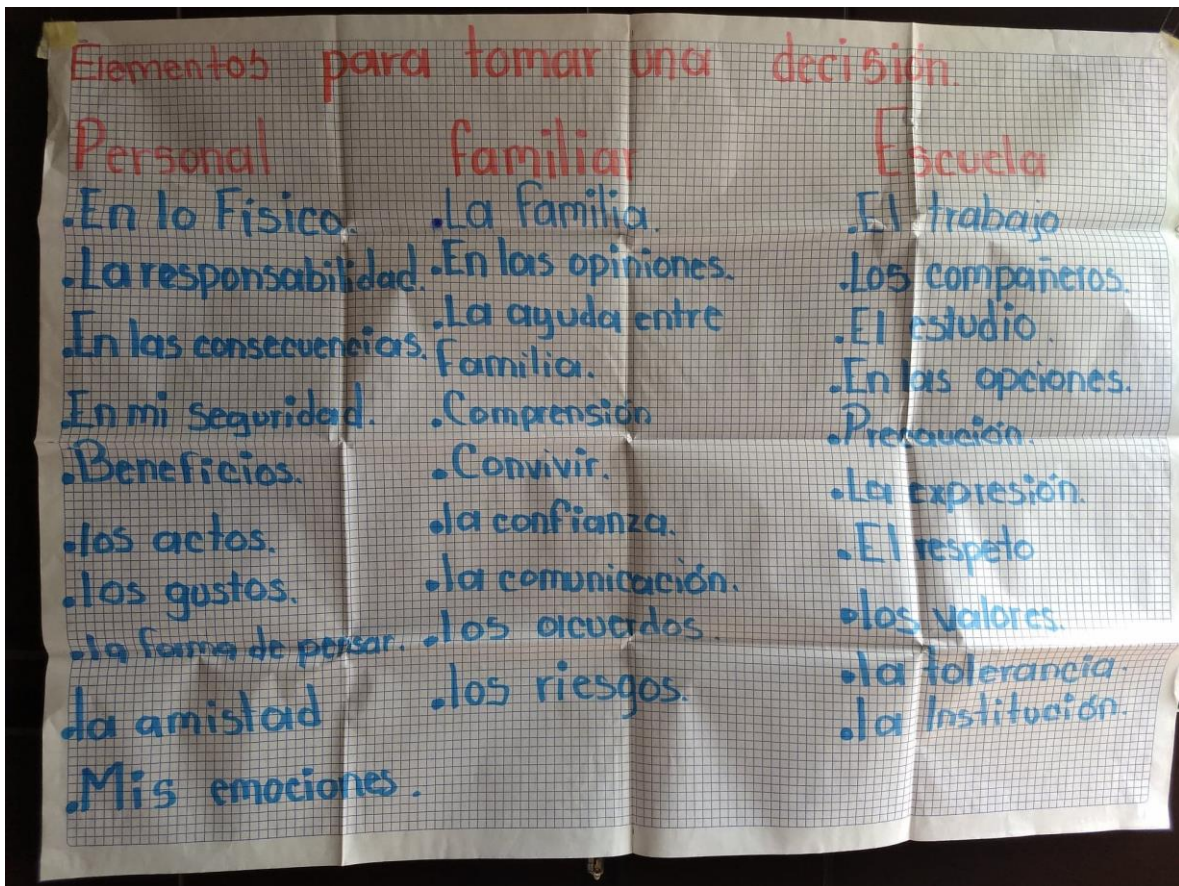 Elementos para tomar una decisión.
Personal
.En lo Físico.
.La responsabilidad.
.En las consecuencias.
.En mi seguridad.
.Beneficios.
.los actos.
.los gustos.
.la forma de pensar.
.la amistad
.Mis emociones.
familiar
.La familia.
.En las opiniones.
.La ayuda entre
familia.
.Comprensión
.Convivir.
.la confianza.
.la comunicación.
.los acuerdos.
.los riesgos.
Escuela
.El trabajo
.Los compañeros.
.El estudio.
.En las opciones.
.Precaución.
.La expresión.
.El respeto
.los valores.
.la tolerancia.
.la Institución.